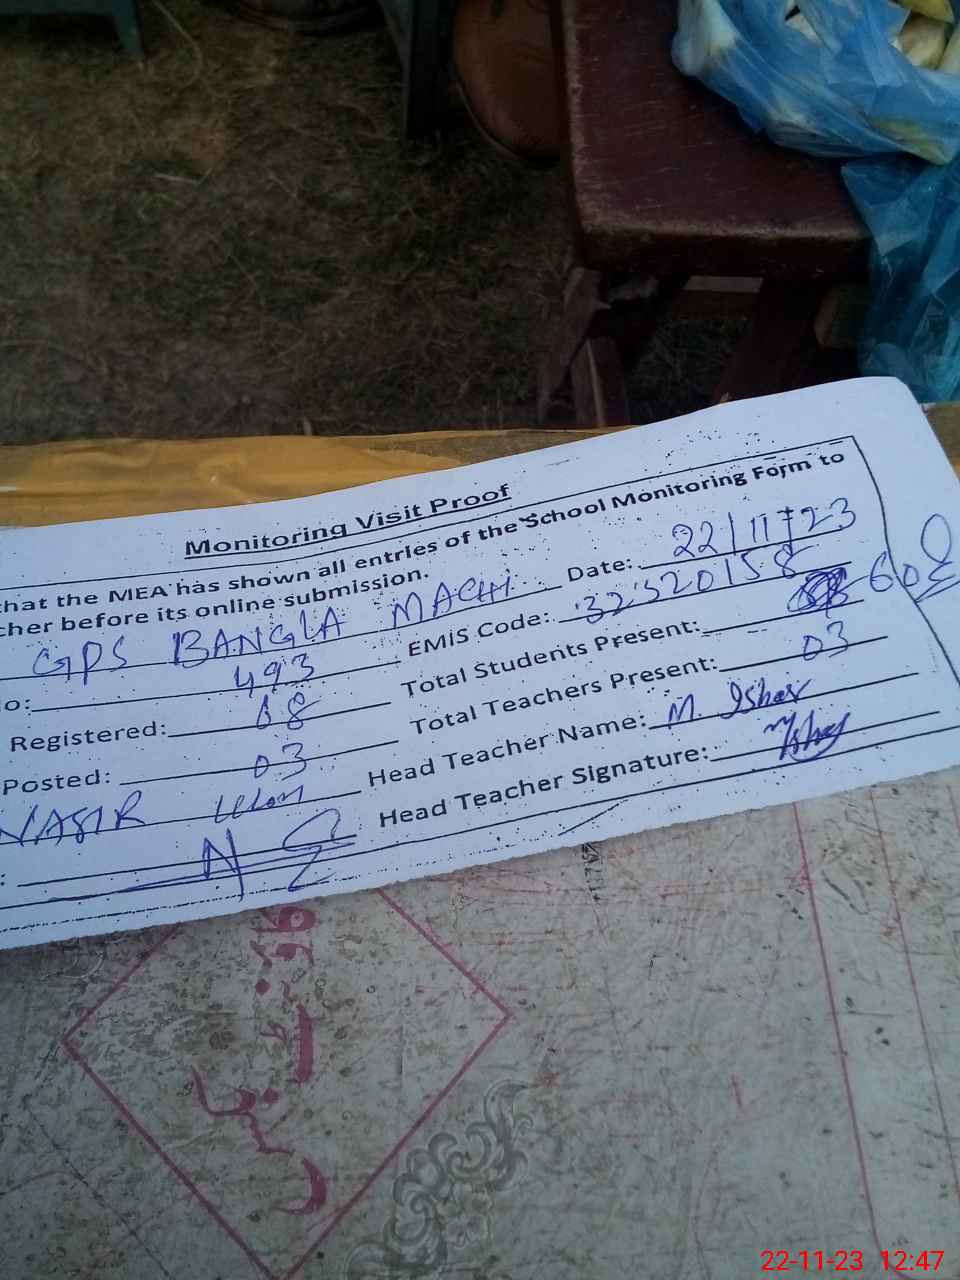 Monitoring Visit Proof
that the MEA has shown all entries of the School Monitoring Form to
cher before its online submission.
GPS BANGLA MACHI Date: 22/11/23
o: 493 EMIS Code: 32320158
Registered: 68 Total Students Present: 60
Posted: 03 Total Teachers Present: 03
NASIR Head Teacher Name: M. Ishaq
: Head Teacher Signature:
22-11-23 12:47